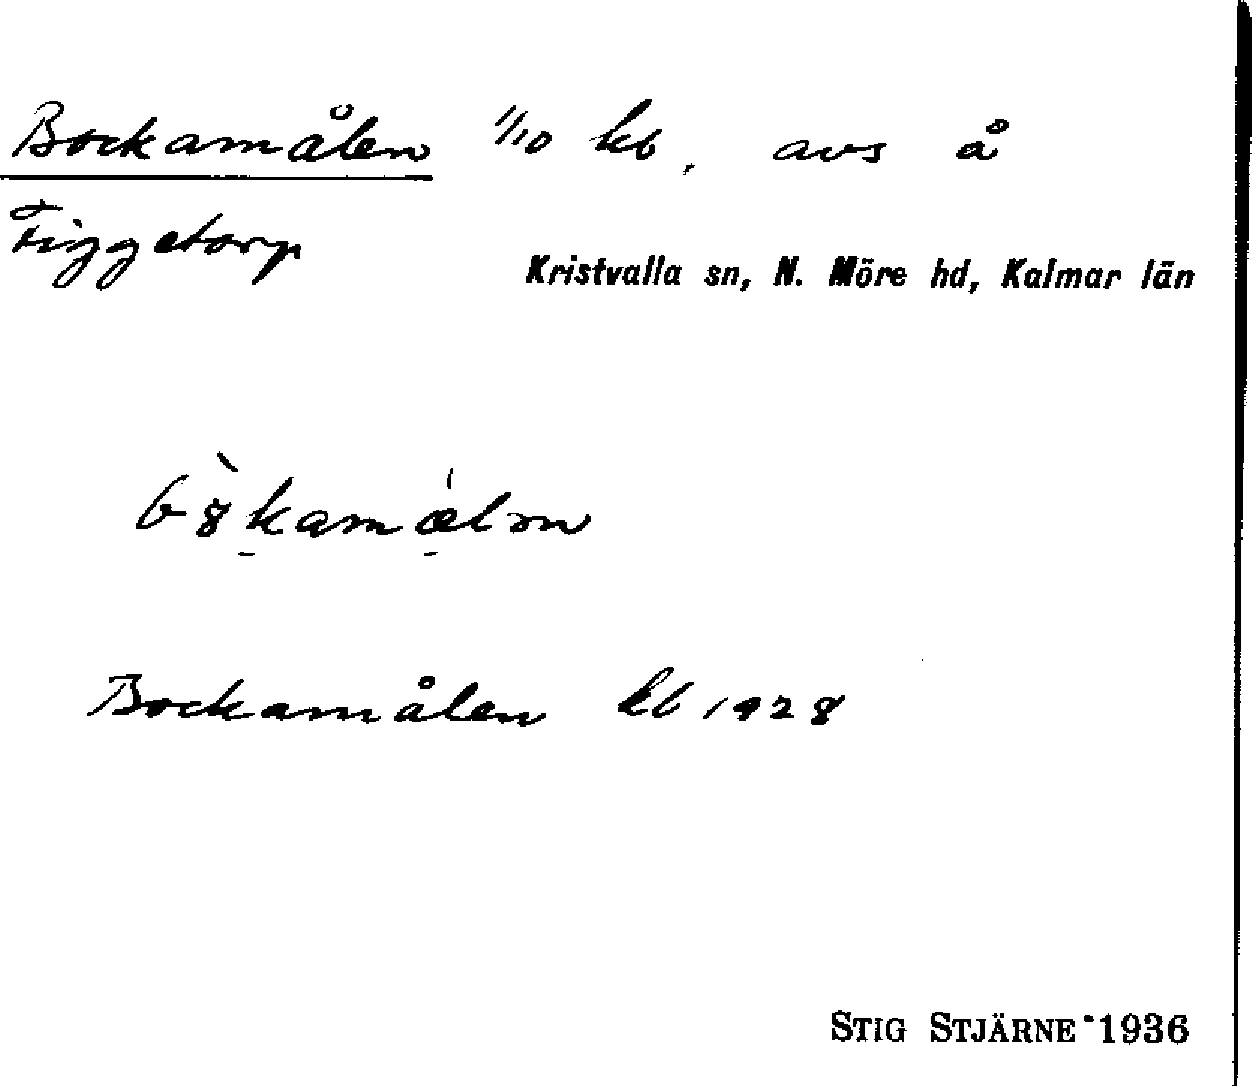 Bockamålen 1/10 kb, avs å
Figgetorp
Kristvalla sn, N. Möre hd, Kalmar län
Bockamålen kb 1928
STIG STJÄRNE 1936